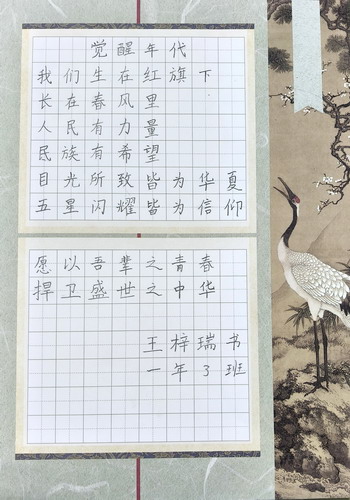 觉醒年代
我们生在红旗下
长在春风里
人民有力量
民族有希望
目光所致皆为华夏
五星闪耀皆为信仰
愿以吾辈之青春
捍卫盛世之中华
王梓瑞书
一年3班